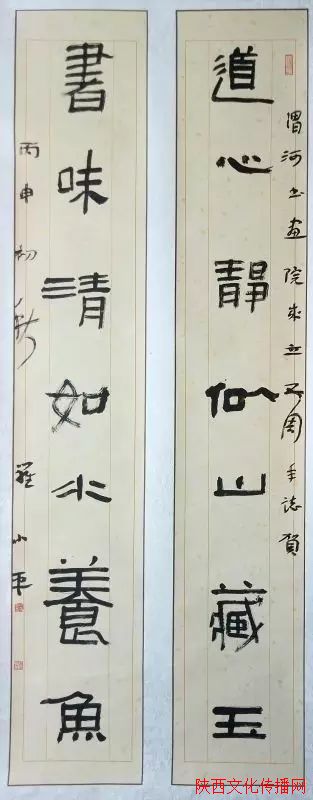 渭河书画院成立五周年志贺
道心静似山藏玉
書味清如水養魚
丙申初秋
羅小平
陕西文化传播网